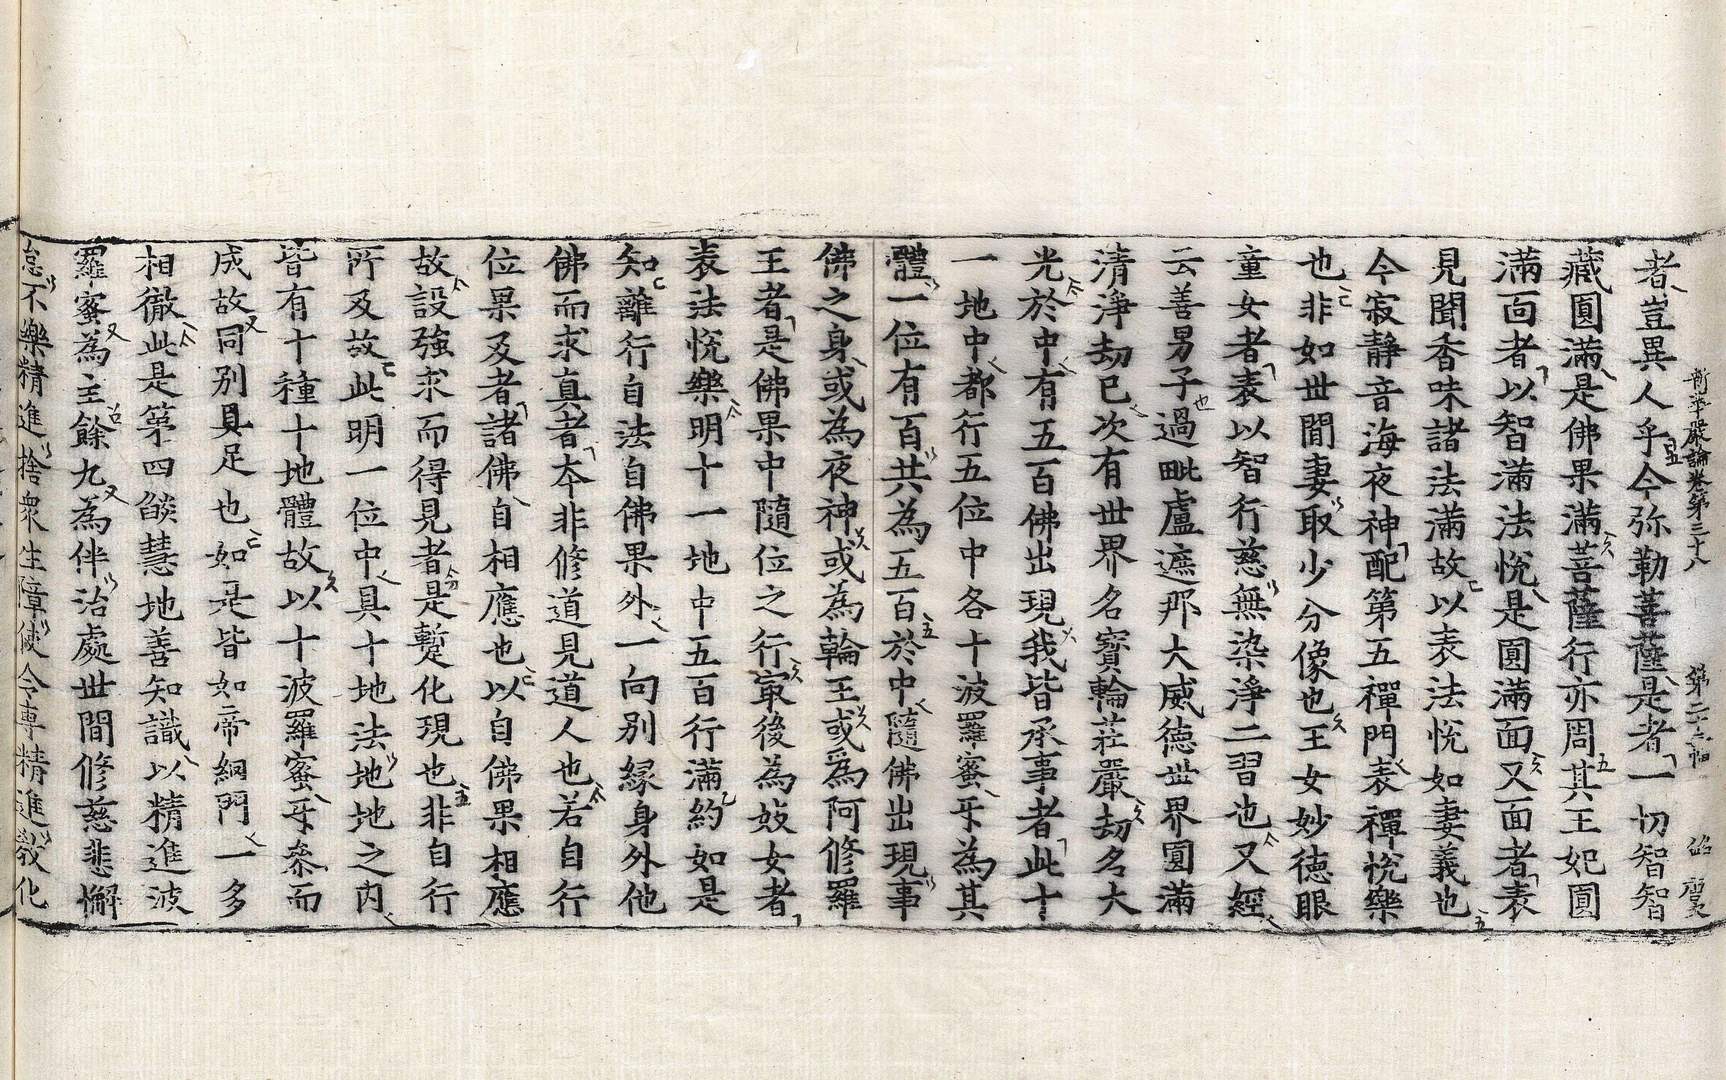 新華嚴論卷第三十八 第二十六幅
者豈異人乎今弥勒菩薩是者一切智智
藏圓滿是佛果滿菩薩行亦周其王妃圓
滿面者以智滿法悅是圓滿面又面者表
見聞香味諸法滿故以表法悅如妻義也
今寂靜音海夜神配第五禪門表禪悅樂
也非如世間妻取少分像也王女妙德眼
童女者表以智行慈無染淨二習也又經
云善男子過毗盧遮那大威德世界圓滿
清淨劫已次有世界名寶輪莊嚴劫名大
光於中有五百佛出現我皆承事者此十
一地中都行五位中各十波羅蜜㸦為其
體一位有百共為五百於中隨佛出現事
佛之身或為夜神或為輪王或爲阿修羅
王者是佛果中隨位之行㝡後為妓女者
表法悅樂明十一地中五百行滿約如是
知離行自法自佛果外一向別緣身外他
佛而求真者本非修道見道人也若自行
位果及者諸佛自相應也以自佛果相應
故設強求而得見者是蹔化現也非自行
所及故此明一位中具十地法地地之内
皆有十種十地體故以十波羅蜜㸦叅而
成故同別具足也如是皆如帝網門一多
相徹此是第四燄慧地善知識以精進波
羅蜜為主餘九為伴治處世間修慈悲懈
怠不樂精進捨衆生障使令專精進教化